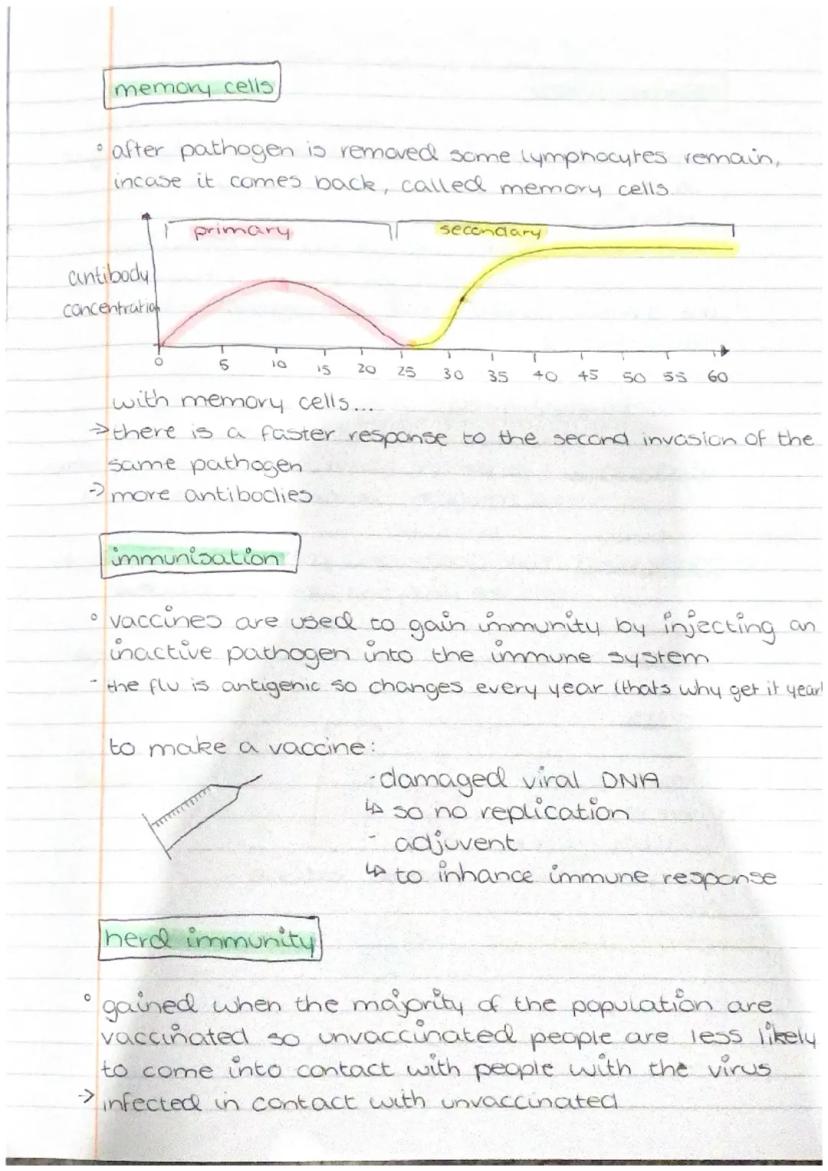 memory cells
° after pathogen is removed some lymphocytes remain,
incase it comes back, called memory cells.
primary secondary
antibody
concentration
0 5 10 15 20 25 30 35 40 45 50 55 60
with memory cells...
→ there is a faster response to the second invasion of the
same pathogen
→ more antibodies
immunisation
° vaccines are used to gain immunity by injecting an
inactive pathogen into the immune system
- the flu is antigenic so changes every year (thats why get it year
to make a vaccine:
- damaged viral DNA
↳ so no replication
- adjuvent
↳ to inhance immune response
herd immunity
° gained when the majority of the population are
vaccinated so unvaccinated people are less likely
to come into contact with people with the virus
→ infected in contact with unvaccinated